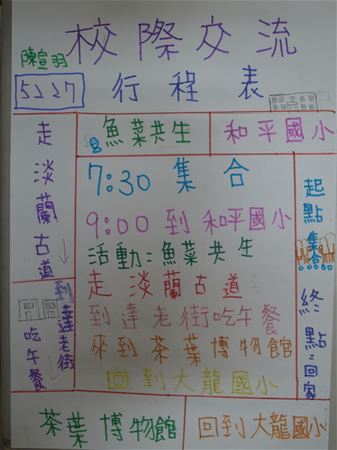 校際交流
陳宣羽
5227
行程表
魚菜共生
和平國小
走淡蘭古道
7:30 集合
9:00 到 和平國小
活動:魚菜共生
走 淡蘭古道
到達老街吃午餐
來到茶葉博物館
回到大龍國小
起點 集合
終點:回家
到達老街
吃午餐
茶葉博物館
回到大龍國小